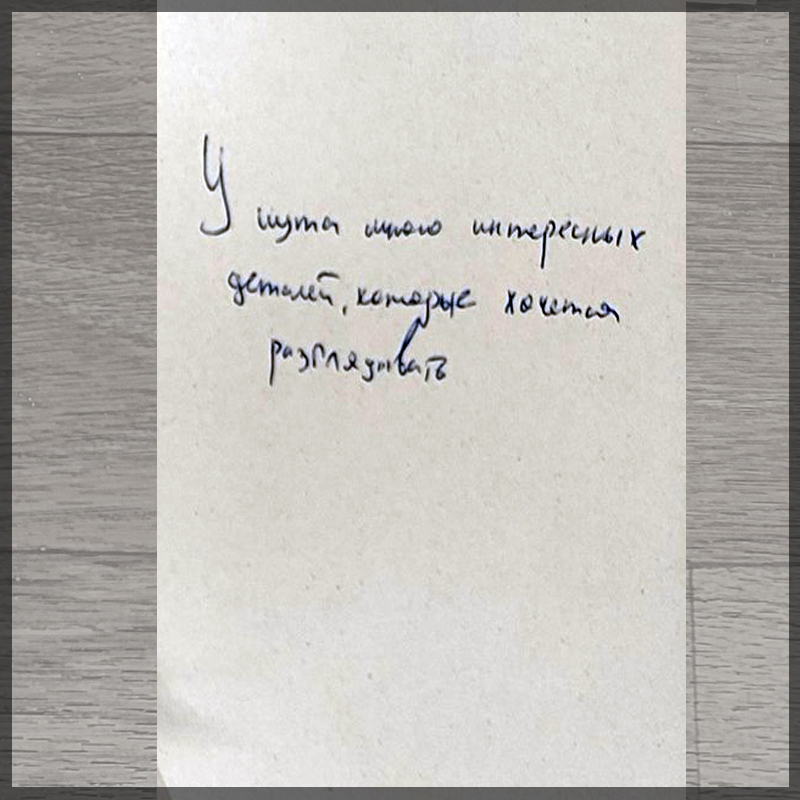 У шута много интересных
деталей, которые хочется
разглядывать